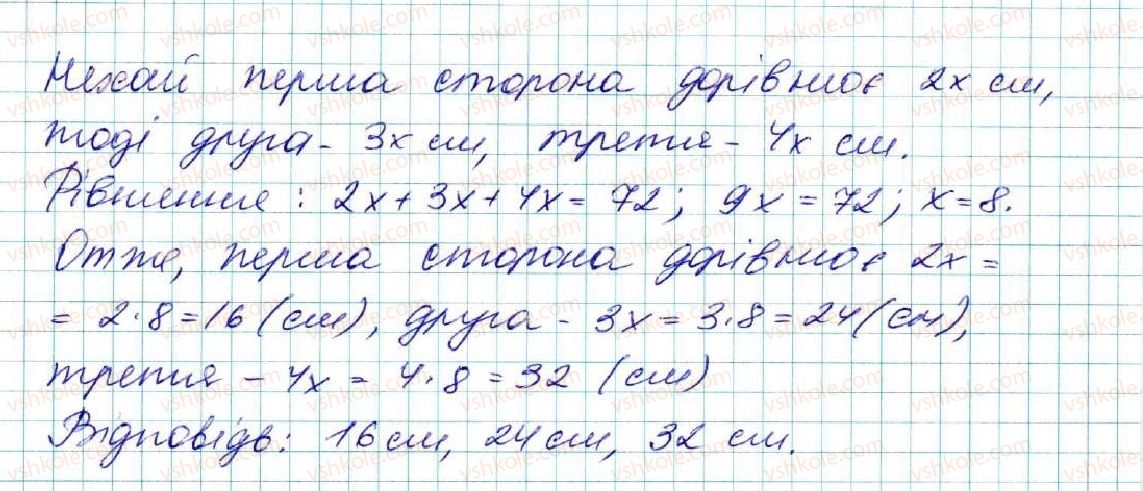 Нехай перша сторона дорівнює 2x см,
тоді друга - 3x см, третя - 4x см.
Рівняння: 2x + 3x + 4x = 72; 9x = 72; x = 8.
Отже, перша сторона дорівнює 2x =
= 2·8 = 16 (см), друга - 3x = 3·8 = 24 (см),
третя - 4x = 4·8 = 32 (см)
Відповідь: 16 см, 24 см, 32 см.